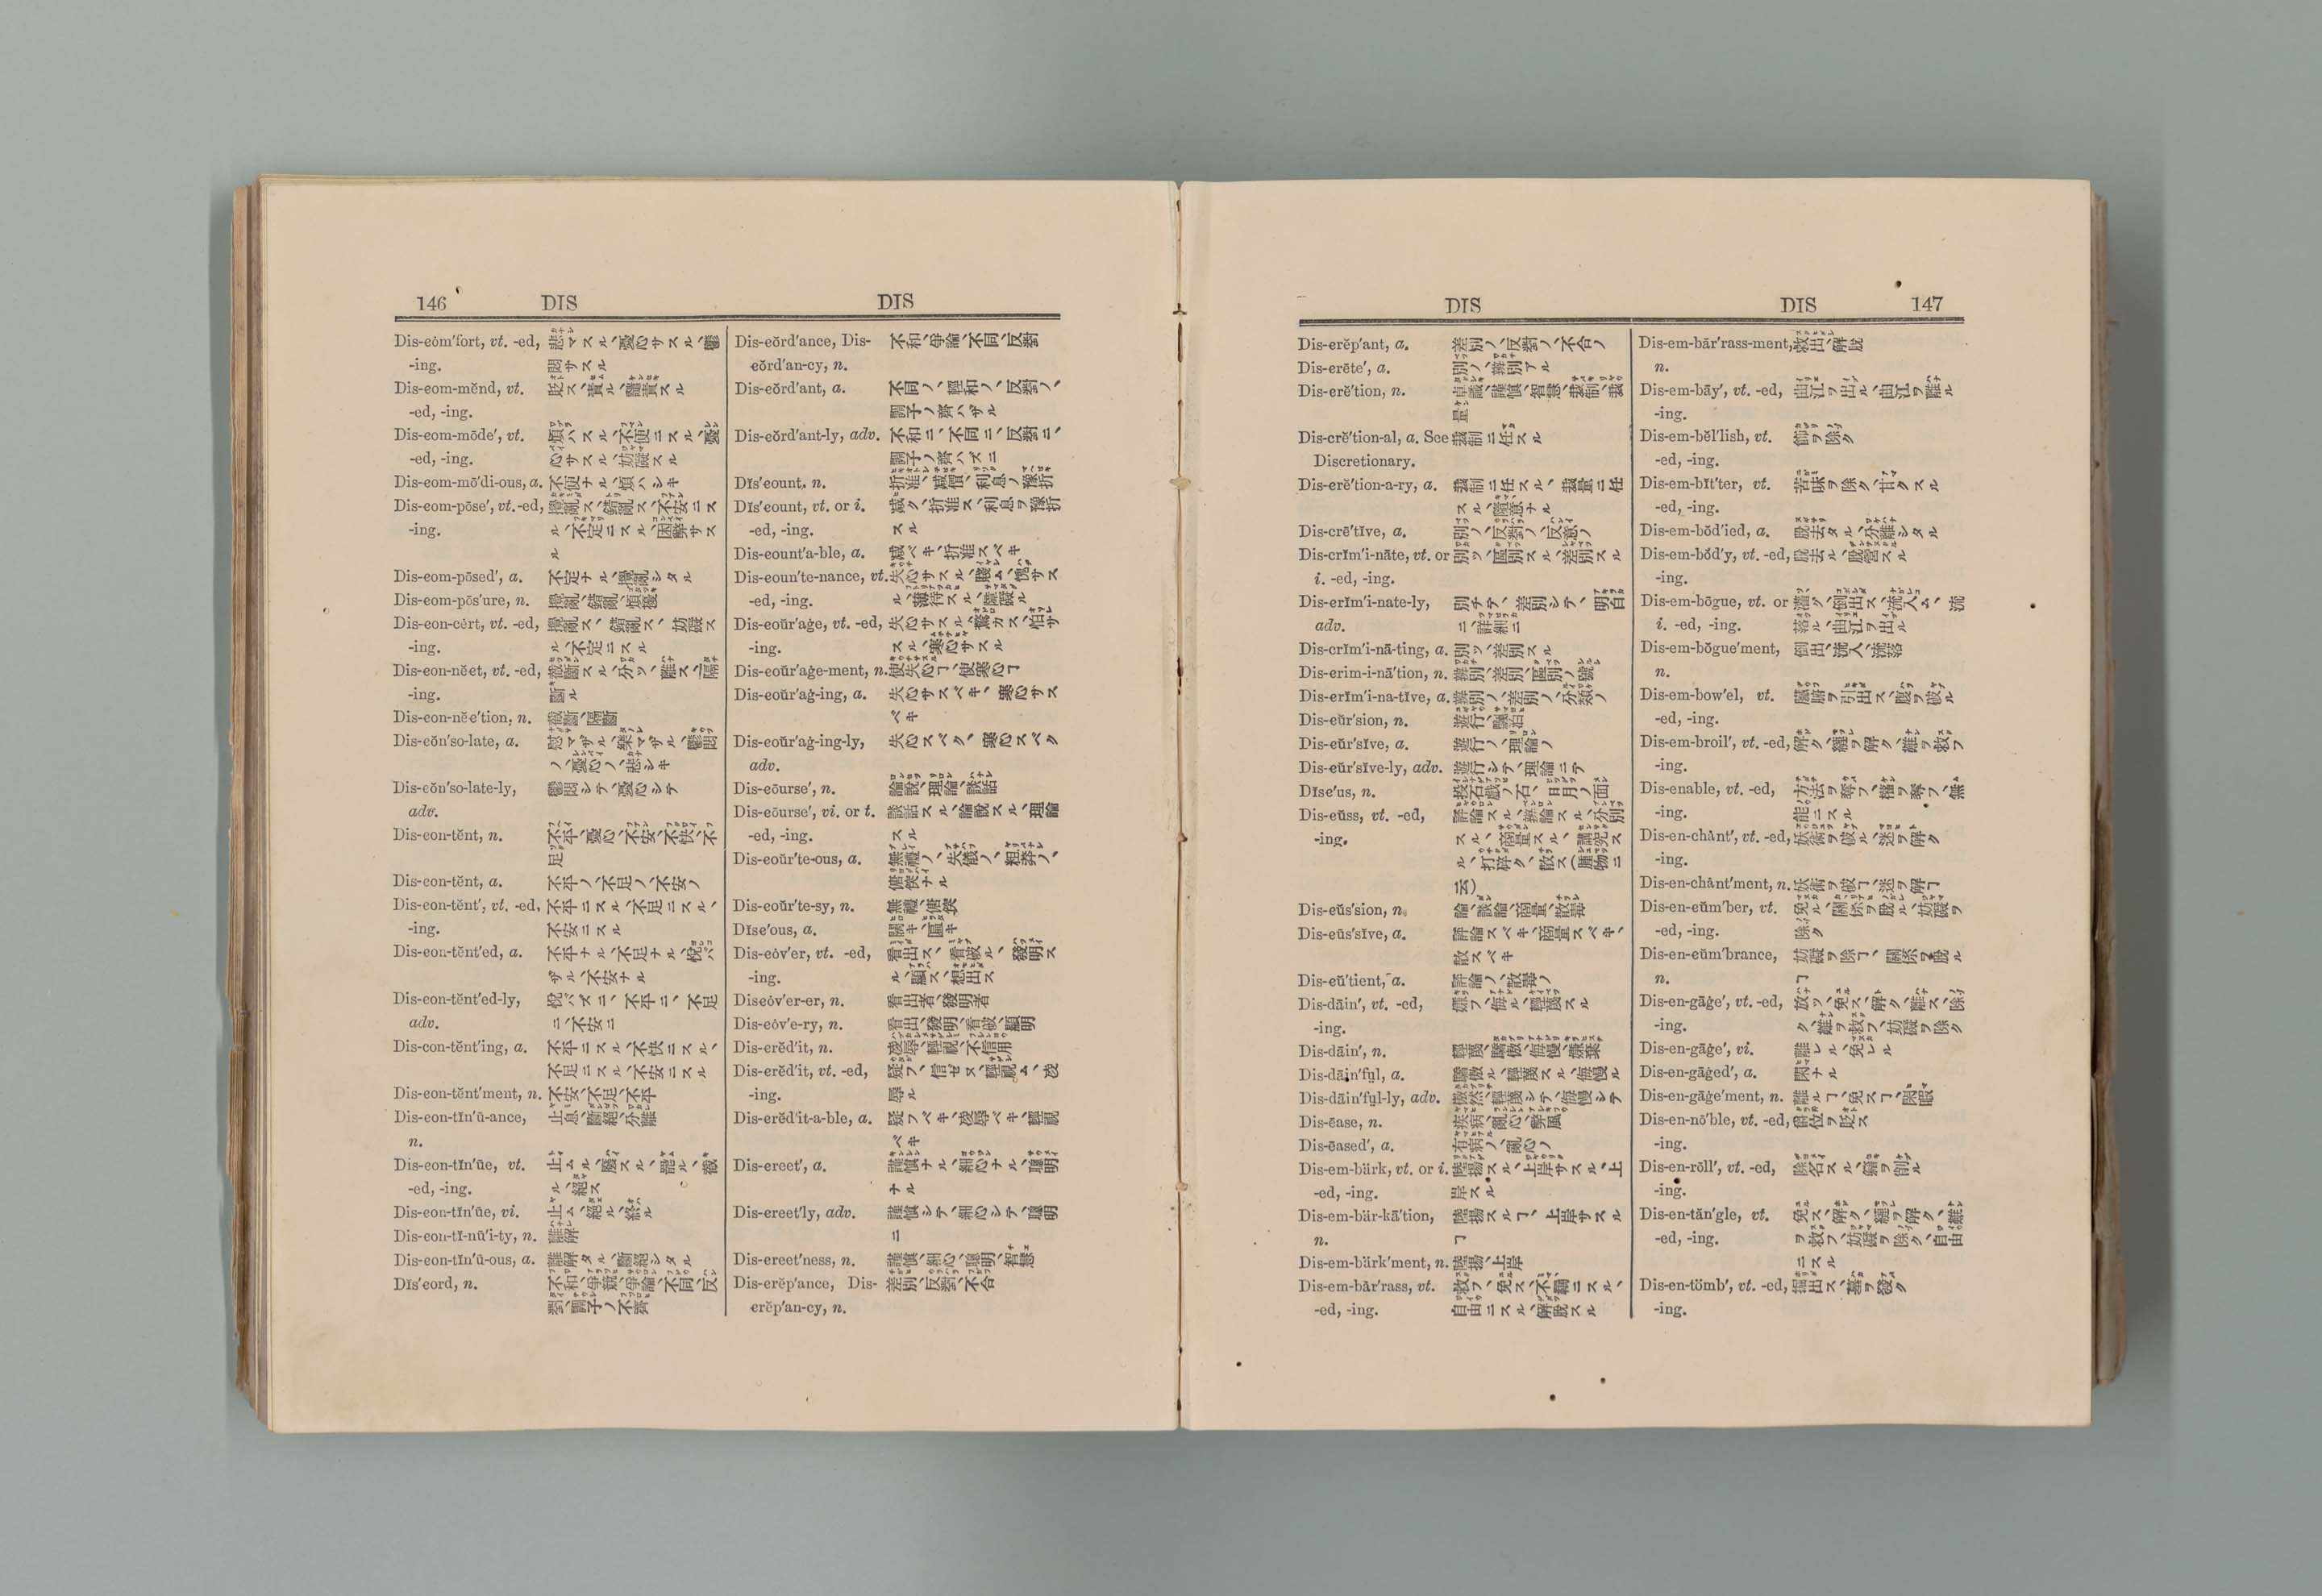 146 DIS DIS
Dis-cóm'fort, vt. -ed, 悲マスル、憂心サスル、鬱
-ing. 悶サスル
Dis-com-mĕnd, vt. 貶ス、責ル、譴責スル
-ed, -ing.
Dis-com-mōde', vt. 煩ハスル、不便ニスル、憂
-ed, -ing. 心サスル、妨礙スル
Dis-com-mō'di-ous, a. 不便ナル、煩ハシキ
Dis-com-pōse', vt.-ed, 攪亂ス、錯亂ス、不安ニス
-ing. ル、不定ニスル、困弊サス
ル
Dis-com-pōsed', a. 不定ナル、攪亂シタル
Dis-com-pōs'ure, n. 攪亂、錯亂、煩擾
Dis-con-cẽrt, vt. -ed, 攪亂ス、錯亂ス、妨礙ス
-ing. ル、不定ニスル
Dis-con-nĕct, vt. -ed, 截斷スル、分ツ、離ス、隔
-ing. 斷ル
Dis-con-nĕc'tion, n. 截斷、隔斷
Dis-cŏn'so-late, a. 慰マザル、樂マザル、鬱悶
ノ、憂心ノ、悲シキ
Dis-cŏn'so-late-ly, 鬱悶シテ、憂心シテ
adv.
Dis-con-tĕnt, n. 不平、憂心、不安、不快、不
足
Dis-con-tĕnt, a. 不平ノ、不足ノ、不安ノ
Dis-con-tĕnt', vt. -ed, 不平ニスル、不足ニスル、
-ing. 不安ニスル
Dis-con-tĕnt'ed, a. 不平ナル、不足ナル、悅バ
ザル、不安ナル
Dis-con-tĕnt'ed-ly, 悅バズニ、不平ニ、不足
adv. ニ、不安ニ
Dis-con-tĕnt'ing, a. 不平ニスル、不快ニスル、
不足ニスル、不安ニスル
Dis-con-tĕnt'ment, n. 不安、不足、不平
Dis-con-tĭn'ū-ance, 止息、斷絕、分離
n.
Dis-con-tĭn'ūe, vt. 止ムル、廢スル、罷ル、截
-ed, -ing. ル、絕ス
Dis-con-tĭn'ūe, vi. 止ム、絕ル、終ル
Dis-con-tĭ-nū'i-ty, n. 離解
Dis-con-tĭn'ū-ous, a. 離解タル、斷絕シタル
Dĭs'cord, n. 不和、爭競、爭論、不同、反
對、調子ノ不齊
Dis-cŏrd'ance, Dis- 不和、爭論、不同、反對
cŏrd'an-cy, n.
Dis-cŏrd'ant, a. 不同ノ、輕和ノ、反對ノ、
調子ノ齊ハザル
Dis-cŏrd'ant-ly, adv. 不和ニ、不同ニ、反對ニ、
調子ノ齊ハズニ
Dĭs'count, n. 折准、減價、利息ノ豫折
Dĭs'count, vt. or i. 減ク、折准ス、利息ヲ豫折
-ed, -ing. スル
Dis-count'a-ble, a. 減ベキ、折准スベキ
Dis-coun'te-nance, vt. 失心サスル、賤ム、愧サス
-ed, -ing. ル、薄待スル、障礙ル
Dis-coŭr'age, vt. -ed, 失心サスル、驚カス、怕サ
-ing. スル、寒心サスル
Dis-coŭr'age-ment, n. 使失心ヿ、使寒心ヿ
Dis-coŭr'aġ-ing, a. 失心サスベキ、寒心サス
ベキ
Dis-coŭr'aġ-ing-ly, 失心スベク、寒心スベク
adv.
Dis-cōurse', n. 論說、理論、談話
Dis-cōurse', vi. or t. 談話スル、論說スル、理論
-ed, -ing. スル
Dis-coŭr'te-ous, a. 無禮ノ、失儀ノ、粗莽ノ、
倨傲ナル
Dis-coŭr'te-sy, n. 無禮、倨傲
Dĭsc'ous, a. 闊キ、區キ
Dis-cóv'er, vt. -ed, 看出ス、看破ル、發明ス
-ing. ル、顯ス、想出ス
Discóv'er-er, n. 看出者、發明者
Dis-cóv'e-ry, n. 看出、發明、看破、顯明
Dis-crĕd'it, n. 凌辱、輕視、不信用
Dis-crĕd'it, vt. -ed, 疑フ、信ゼヌ、輕視ム、凌
-ing. 辱ル
Dis-crĕd'it-a-ble, a. 疑フベキ、凌辱ベキ、輕視
ベキ
Dis-creet', a. 謹愼ナル、細心ナル、聰明
ナル
Dis-creet'ly, adv. 謹愼シテ、細心シテ、聰明
ニ
Dis-creet'ness, n. 謹愼、細心、聰明、智慧
Dis-crĕp'ance, Dis- 差別、反對、不合
crĕp'an-cy, n.
DIS DIS 147
Dis-crĕp'ant, a. 差別ノ、反對ノ、不合ノ
Dis-crēte', a. 別ノ、辨別アル
Dis-crĕ'tion, n. 卓識、謹愼、智慧、裁制、裁
量
Dis-crĕ'tion-al, a. See 裁制ニ任スル
Discretionary.
Dis-crĕ'tion-a-ry, a. 裁制ニ任スル、裁量ニ任
スル、隨意ナル
Dis-crē'tĭve, a. 別ノ、反對ノ、反意ノ
Dis-crĭm'i-nāte, vt. or 別ツ、區別スル、差別スル
i. -ed, -ing.
Dis-crĭm'i-nate-ly, 別チテ、差別シテ、明白
adv. ニ、詳細ニ
Dis-crĭm'i-nā-ting, a. 別ツ、差別スル
Dis-crim-i-nā'tion, n. 辨別、差別、區別ノ號
Dis-crĭm'i-na-tĭve, a. 辨別ノ、差別ノ、分類ノ
Dis-cŭr'sion, n. 遊行、飄泊
Dis-cŭr'sĭve, a. 遊行ノ、理論ノ
Dis-cŭr'sĭve-ly, adv. 遊行シテ、理論ニテ
Dĭsc'us, n. 投石戲ノ石、日月ノ面
Dis-cŭss, vt. -ed, 評論スル、辨論スル、分別
-ing. スル、商量スル、講究ス
ル、打碎ク、散ス(腫物ニ
云)
Dis-cŭs'sion, n. 論、談論、商量、散
Dis-cŭs'sĭve, a. 評論スベキ、商量スベキ、
散スベキ
Dis-cū'tient, a. 評論ノ、散
Dis-dāin', vt. -ed, 嫌フ、侮ル、輕蔑スル
-ing.
Dis-dāin', n. 輕蔑、驕傲、侮慢、嫌棄
Dis-dāin'fụl, a. 驕傲ル、輕蔑スル、侮慢ル
Dis-dāin'fụl-ly, adv. 傲然、輕蔑シテ、侮慢シテ
Dis-ēase, n. 疾病、亂心、弊風
Dis-ēased', a. 有病ノ、亂心ノ
Dis-em-bärk, vt. or i. 陸揚スル、上岸サスル、上
-ed, -ing. 岸スル
Dis-em-bär-kā'tion, 陸揚スルヿ、上岸サスル
n. ヿ
Dis-em-bärk'ment, n. 陸揚、上岸
Dis-em-băr'rass, vt. 救フ、免ス、不羈ニスル、
-ed, -ing. 自由ニスル、解脫スル
Dis-em-băr'rass-ment, 救出、解脫
n.
Dis-em-bāy', vt. -ed, 曲江ヲ出ル、曲江ヲ離ル
-ing.
Dis-em-bĕl'lish, vt. 飾ヲ除ク
-ed, -ing.
Dis-em-bĭt'ter, vt. 苦味ヲ除ク、甘クスル
-ed, -ing.
Dis-em-bŏd'ied, a. 脫去タル、分離シタル
Dis-em-bŏd'y, vt. -ed, 脫去ル、脫營スル
-ing.
Dis-em-bōgue, vt. or 瀉ク、倒出ス、流入ム、流
i. -ed, -ing. 落ル、曲江ヲ出ル
Dis-em-bōgue'ment, 倒出、流入、流落
n.
Dis-em-bow'el, vt. 臟腑ヲ引出ス、腹ヲ破ル
-ed, -ing.
Dis-em-broil', vt. -ed, 解ク、纏ヲ解ク、難ヲ救フ
-ing.
Dis-enable, vt. -ed, 方法ヲ奪フ、權ヲ奪フ、無
-ing. 能ニスル
Dis-en-chånt', vt. -ed, 妖術ヲ破ル、迷ヲ解ク
-ing.
Dis-en-chånt'ment, n. 妖術ヲ破ヿ、迷ヲ解ヿ
Dis-en-cŭm'ber, vt. 免ル、關係ヲ脫ル、妨礙ヲ
-ed, -ing. 除ク
Dis-en-cŭm'brance, 妨礙ヲ除ヿ、關係ヲ脫ル
n. ヿ
Dis-en-gāge', vt. -ed, 放ツ、免ス、解ク、離ス、除
-ing. ク、難ヲ救フ、妨礙ヲ除ク
Dis-en-gāge', vi. 離レル、免レル
Dis-en-gāged', a. 閑ナル
Dis-en-gāge'ment, n. 離ルヿ、免スヿ、閑暇
Dis-en-nō'ble, vt. -ed, 爵位ヲ貶ス
-ing.
Dis-en-rōll', vt. -ed, 除名スル、籍ヲ削ル
-ing.
Dis-en-tăn'gle, vt. 免ス、解ク、纏ヲ解ク、難
-ed, -ing. ヲ救フ、妨礙ヲ除ク、自由
ニスル
Dis-en-tömb', vt. -ed, 掘出ス、墓ヲ發ク
-ing.